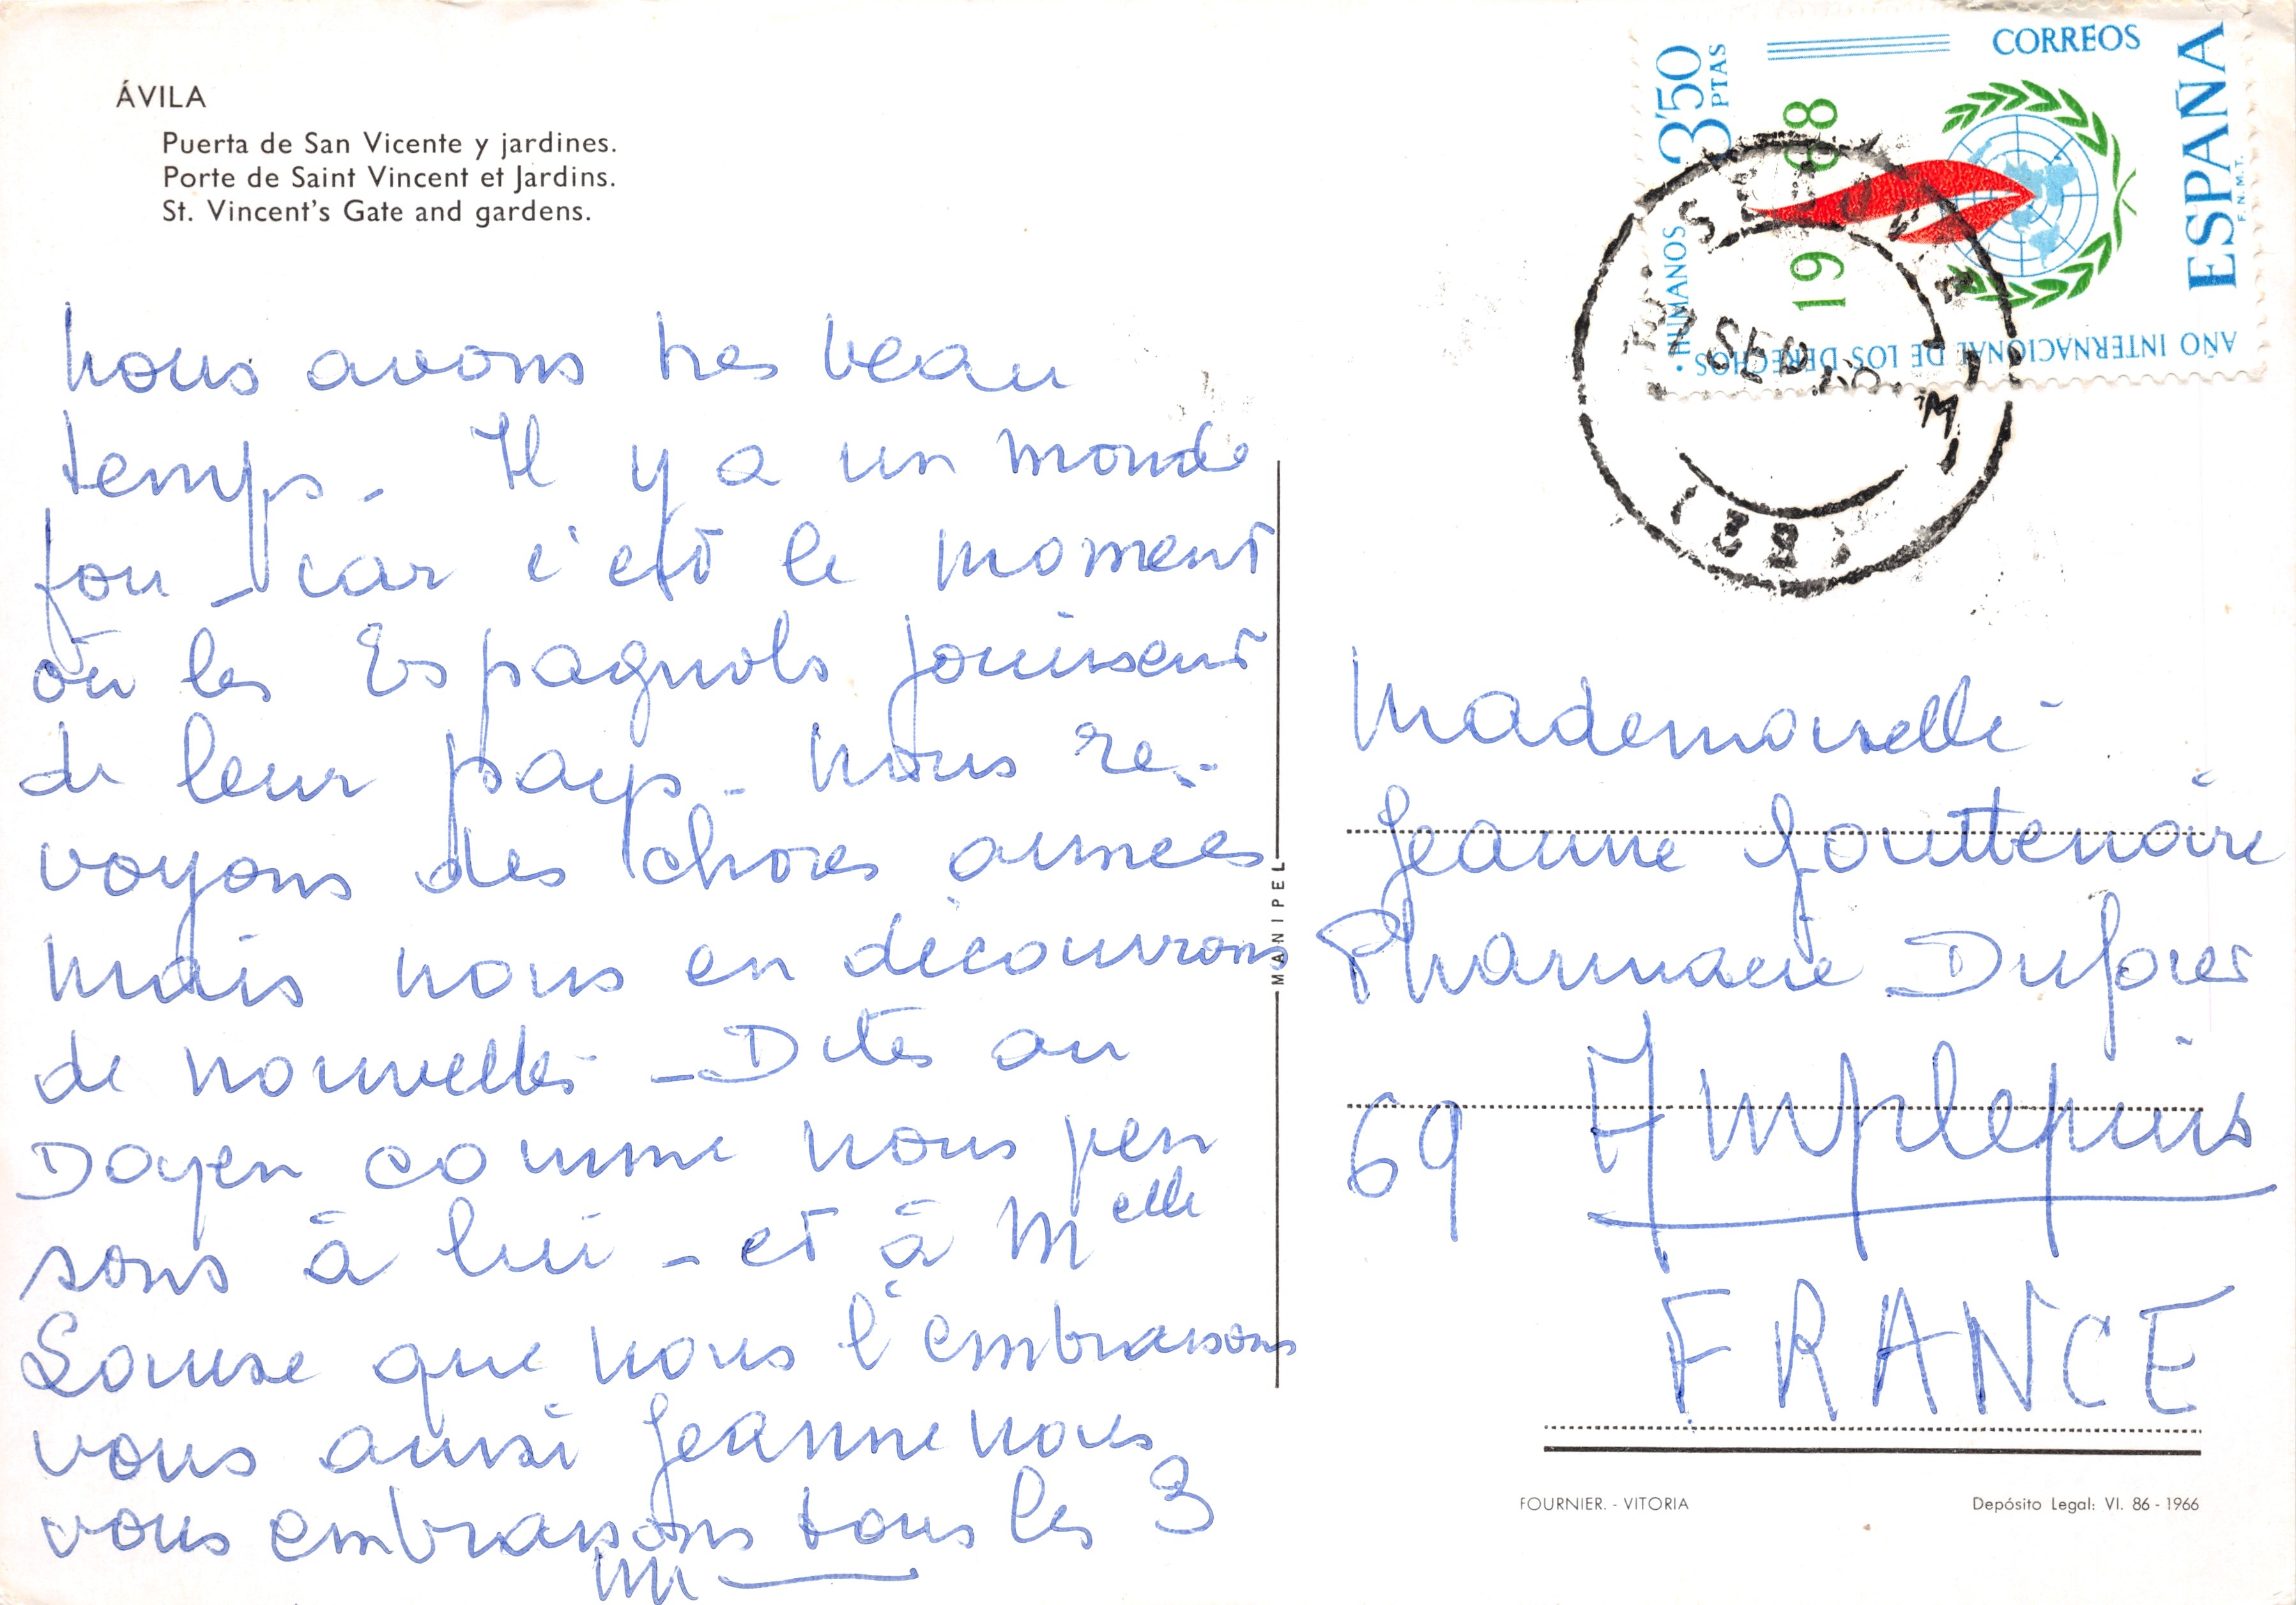 ÁVILA
Puerta de San Vicente y jardines.
Porte de Saint Vincent et Jardins.
St. Vincent's Gate and gardens.
nous avons tres beau
temps - Il y a un monde
fou - car c'est le moment
où les Espagnols jouissent
de leur pays - nous re-
voyons des choses aimées
mais nous en découvrons
de nouvelles - Dites au
Doyen comme nous pen
sons à lui - et à Melle
Louise que nous l'embrassons
vous aussi Jeanne nous
vous embrassons tous les 3
CORREOS
ESPAÑA
F.N.M.T.
3'50 PTAS
1968
AÑO INTERNACIONAL DE LOS DERECHOS · HUMANOS
SEP
MANIPEL
Mademoiselle
Jeanne Gouttenoire
Pharmacie Dufour
69 Amplepuis
FRANCE
FOURNIER. - VITORIA
Depósito Legal: VI. 86 - 1966